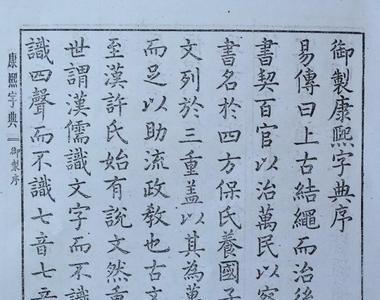 御製康熙字典序
易傳曰上古結繩而治後
書契百官以治萬民以察
書名於四方保氏養國子
文列於三重蓋以其為萬
而足以助流政教也古文
至漢許氏始有說文然重
世謂漢儒識文字而不識
識四聲而不識七音七音
康熙字典
御製序